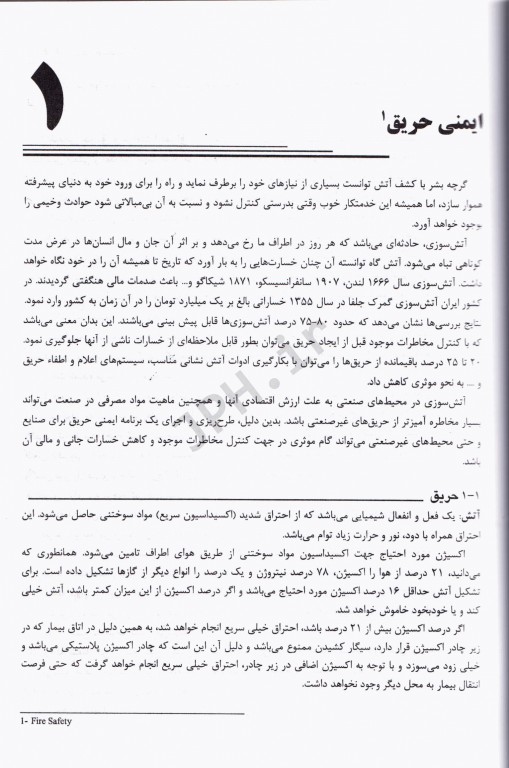 ۱
ایمنی حریق۱
گرچه بشر با کشف آتش توانست بسیاری از نیازهای خود را برطرف نماید و راه را برای ورود خود به دنیای پیشرفته
هموار سازد، اما همیشه این خدمتکار خوب وقتی بدرستی کنترل نشود و نسبت به آن بی‌مبالاتی شود حوادث وخیمی را
بوجود خواهد آورد.
آتش‌سوزی، حادثه‌ای می‌باشد که هر روز در اطراف ما رخ می‌دهد و بر اثر آن جان و مال انسان‌ها در عرض مدت
کوتاهی تباه می‌شود. آتش گاه توانسته آن چنان خسارت‌هایی را به بار آورد که تاریخ تا همیشه آن را در خود نگاه خواهد
داشت. آتش‌سوزی سال ۱۶۶۶ لندن، ۱۹۰۷ سانفرانسیسکو، ۱۸۷۱ شیکاگو و... باعث صدمات مالی هنگفتی گردیدند. در
کشور ایران آتش‌سوزی گمرک جلفا در سال ۱۳۵۵ خساراتی بالغ بر یک میلیارد تومان را در آن زمان به کشور وارد نمود.
نتایج بررسی‌ها نشان می‌دهد که حدود ۸۰-۷۵ درصد آتش‌سوزی‌ها قابل پیش بینی می‌باشند. این بدان معنی می‌باشد
که با کنترل مخاطرات موجود قبل از ایجاد حریق می‌توان بطور قابل ملاحظه‌ای از خسارات ناشی از آنها جلوگیری نمود.
۲۰ تا ۲۵ درصد باقیمانده از حریق‌ها را می‌توان با بکارگیری ادوات آتش نشانی مناسب، سیستم‌های اعلام و اطفاء حریق
و ... به نحو موثری کاهش داد.
آتش‌سوزی در محیط‌های صنعتی به علت ارزش اقتصادی آنها و همچنین ماهیت مواد مصرفی در صنعت می‌تواند
بسیار مخاطره آمیزتر از حریق‌های غیرصنعتی باشد. بدین دلیل، طرح‌ریزی و اجرای یک برنامه ایمنی حریق برای صنایع
و حتی محیط‌های غیرصنعتی می‌تواند گام موثری در جهت کنترل مخاطرات موجود و کاهش خسارات جانی و مالی آن
باشد.
۱-۱ حریق
آتش: یک فعل و انفعال شیمیایی می‌باشد که از احتراق شدید (اکسیداسیون سریع) مواد سوختنی حاصل می‌شود. این
احتراق همراه با دود، نور و حرارت زیاد توام می‌باشد.
اکسیژن مورد احتیاج جهت اکسیداسیون مواد سوختنی از طریق هوای اطراف تامین می‌شود. همانطوری که
می‌دانید، ۲۱ درصد از هوا را اکسیژن، ۷۸ درصد نیتروژن و یک درصد را انواع دیگر از گازها تشکیل داده است. برای
تشکیل آتش حداقل ۱۶ درصد اکسیژن مورد احتیاج می‌باشد و اگر درصد اکسیژن از این میزان کمتر باشد، آتش خیلی
کند و یا خودبخود خاموش خواهد شد.
اگر درصد اکسیژن بیش از ۲۱ درصد باشد، احتراق خیلی سریع انجام خواهد شد، به همین دلیل در اتاق بیمار که در
زیر چادر اکسیژن قرار دارد، سیگار کشیدن ممنوع می‌باشد و دلیل آن این است که چادر اکسیژن پلاستیکی می‌باشد و
خیلی زود می‌سوزد و با توجه به اکسیژن اضافی در زیر چادر، احتراق خیلی سریع انجام خواهد گرفت که حتی فرصت
انتقال بیمار به محل دیگر وجود نخواهد داشت.
1- Fire Safety
JPH.ir